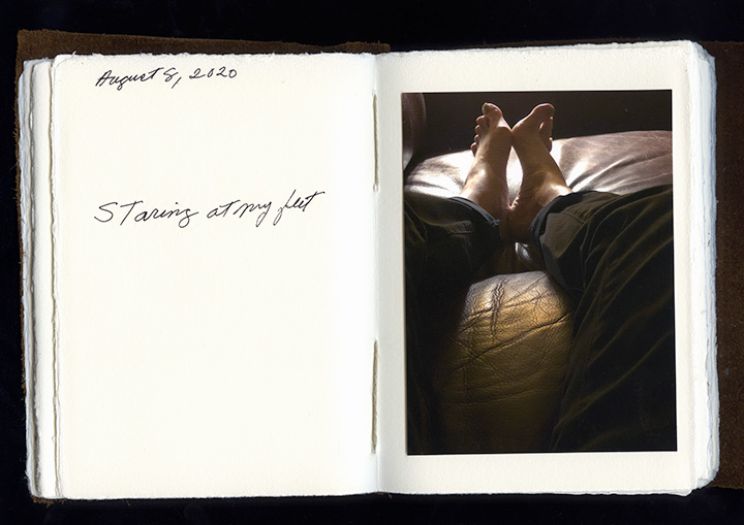 August 8, 2020
Staring at my feet